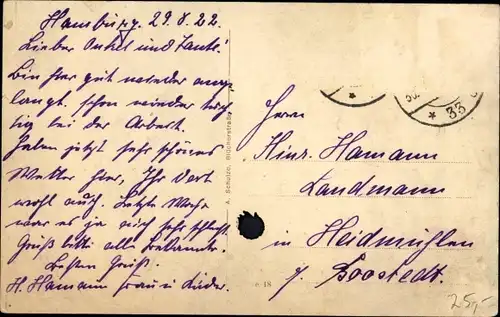 Hamburg. 29.8.22.
Lieber Onkel und Tante!
Bin hier gut wieder ange-
langt. schon wieder tüch-
tig bei der Arbeit.
Haben jetzt sehr schönes
Wetter hier, Ihr dort
wohl auch. Letzte Woche
war es ja auch sehr schlecht.
Grüß bitte alle Bekannte.
Besten Gruß
H. Hamann Frau u Kinder.
A. Schulze, Blücherstraße
33
Herrn
Hinr. Hamann
Landmann
in Heidmühlen
p. Boostedt.
18
25,-